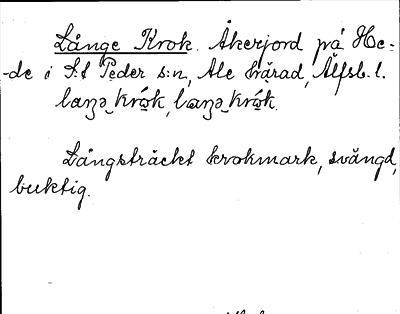 Långe Krok. Åkerjord på He-
-de i S:t Peder s:n, Ale härad, Älfsb. l.
laŋə krók, laŋə krók.
Långsträckt krokmark, svängd,
buktig.